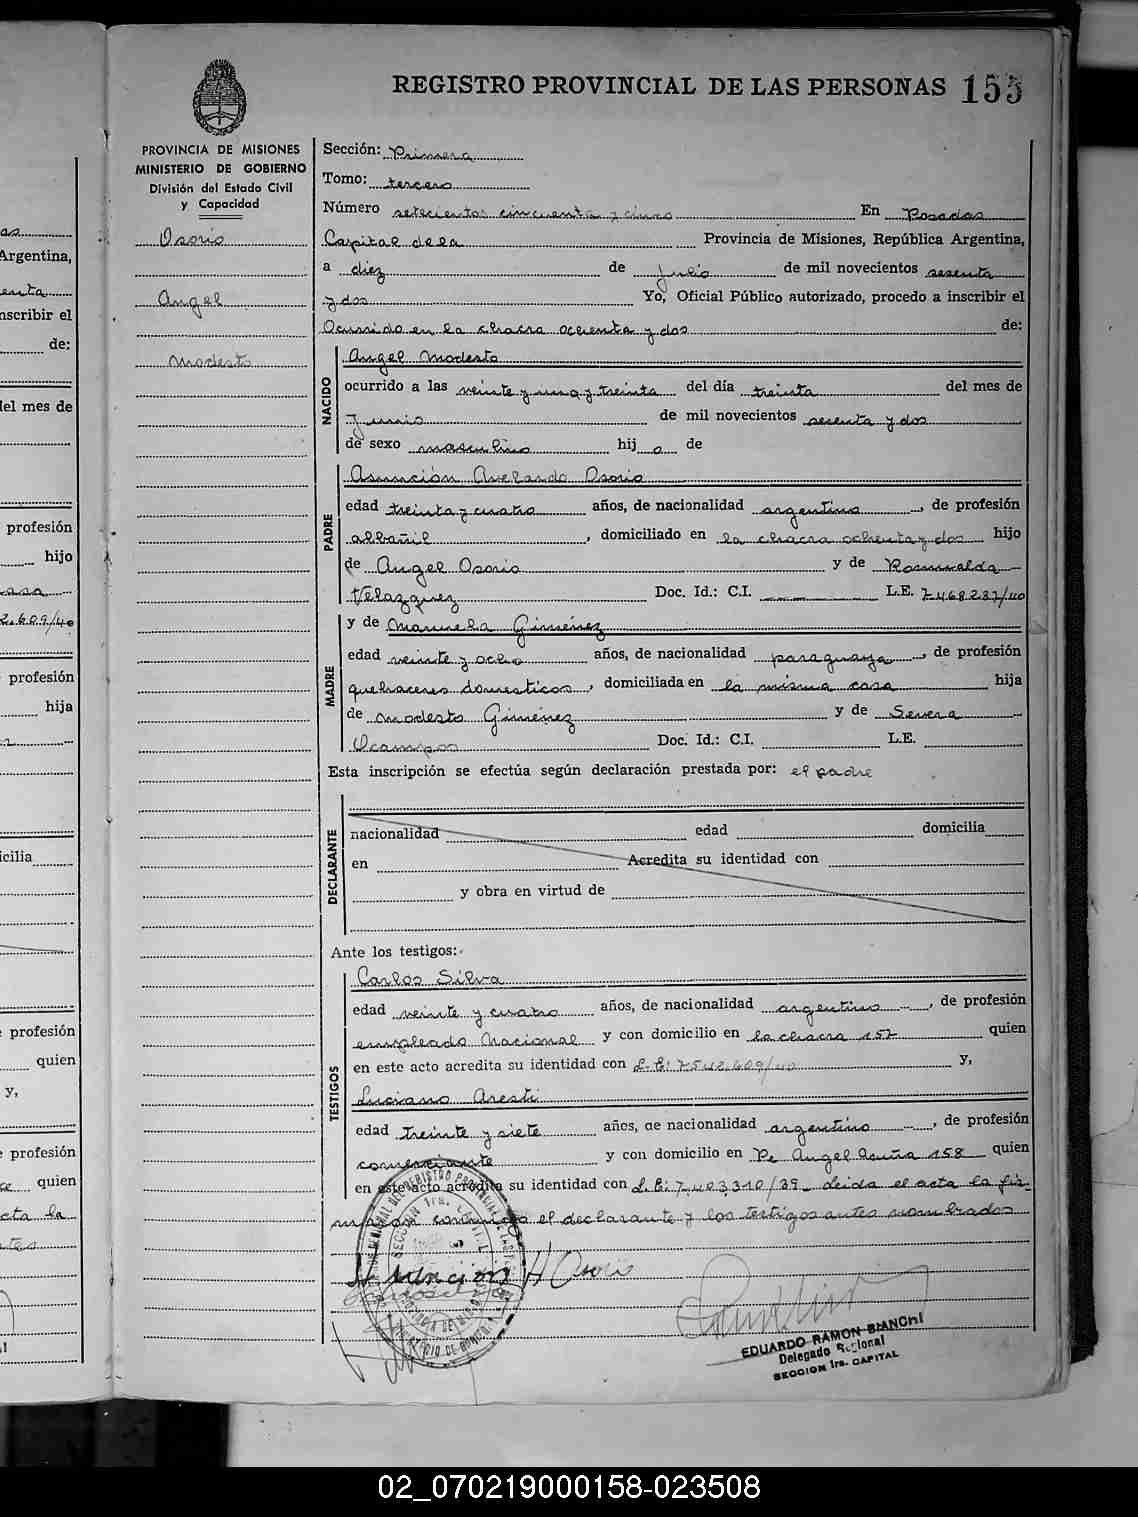 REGISTRO PROVINCIAL DE LAS PERSONAS 155
PROVINCIA DE MISIONES
MINISTERIO DE GOBIERNO
División del Estado Civil
y Capacidad
Osorio
Angel
Modesto
Sección: Primera
Tomo: tercero
Número setecientos cincuenta y cinco En Posadas
Capital de la Provincia de Misiones, República Argentina,
a diez de Julio de mil novecientos sesenta
y dos Yo, Oficial Público autorizado, procedo a inscribir el
Ocurrido en la chacra ochenta y dos de:
NACIDO
Angel Modesto
ocurrido a las veinte y una y treinta del día treinta del mes de
Junio de mil novecientos sesenta y dos
de sexo masculino hij o de
PADRE
Asunción Avelardo Osorio
edad treinta y cuatro años, de nacionalidad argentino, de profesión
albañil, domiciliado en la chacra ochenta y dos hijo
de Angel Osorio y de Romualda
Velazquez Doc. Id.: C.I. L.E. 7468237/40
MADRE
y de Manuela Gimenez
edad veinte y ocho años, de nacionalidad paraguaya, de profesión
quehaceres domesticos, domiciliada en la misma casa hija
de Modesto Gimenez y de Severa
Ocampos Doc. Id.: C.I. L.E.
Esta inscripción se efectúa según declaración prestada por: el padre
DECLARANTE
nacionalidad edad domicilia
en Acredita su identidad con
y obra en virtud de
Ante los testigos:
TESTIGOS
Carlos Silva
edad veinte y cuatro años, de nacionalidad argentino, de profesión
empleado Nacional y con domicilio en la chacra 157 quien
en este acto acredita su identidad con L.E: 7542609/40 y,
Luciano Aresti
edad treinte y siete años, de nacionalidad argentino, de profesión
comerciante y con domicilio en Pe Angel Acuña 158 quien
en este acto acredita su identidad con L.E: 7.403.310/39 leida el acta la fir-
conmigo el declarante y los testigos antes nombrados
Asunción A Osorio
EDUARDO RAMON BIANCHI
Delegado Regional
SECCION 1ra. CAPITAL
02_070219000158-023508